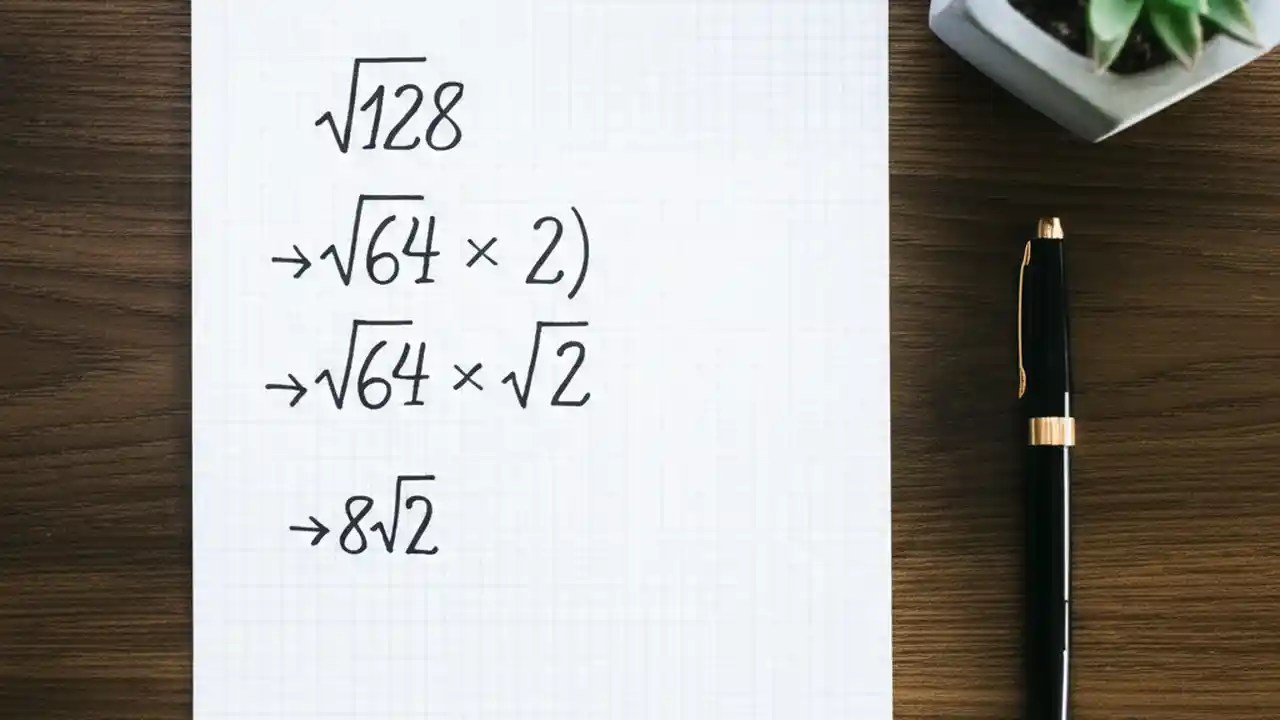 √128
→ √64 × 2)
→ √64 × √2
→ 8√2